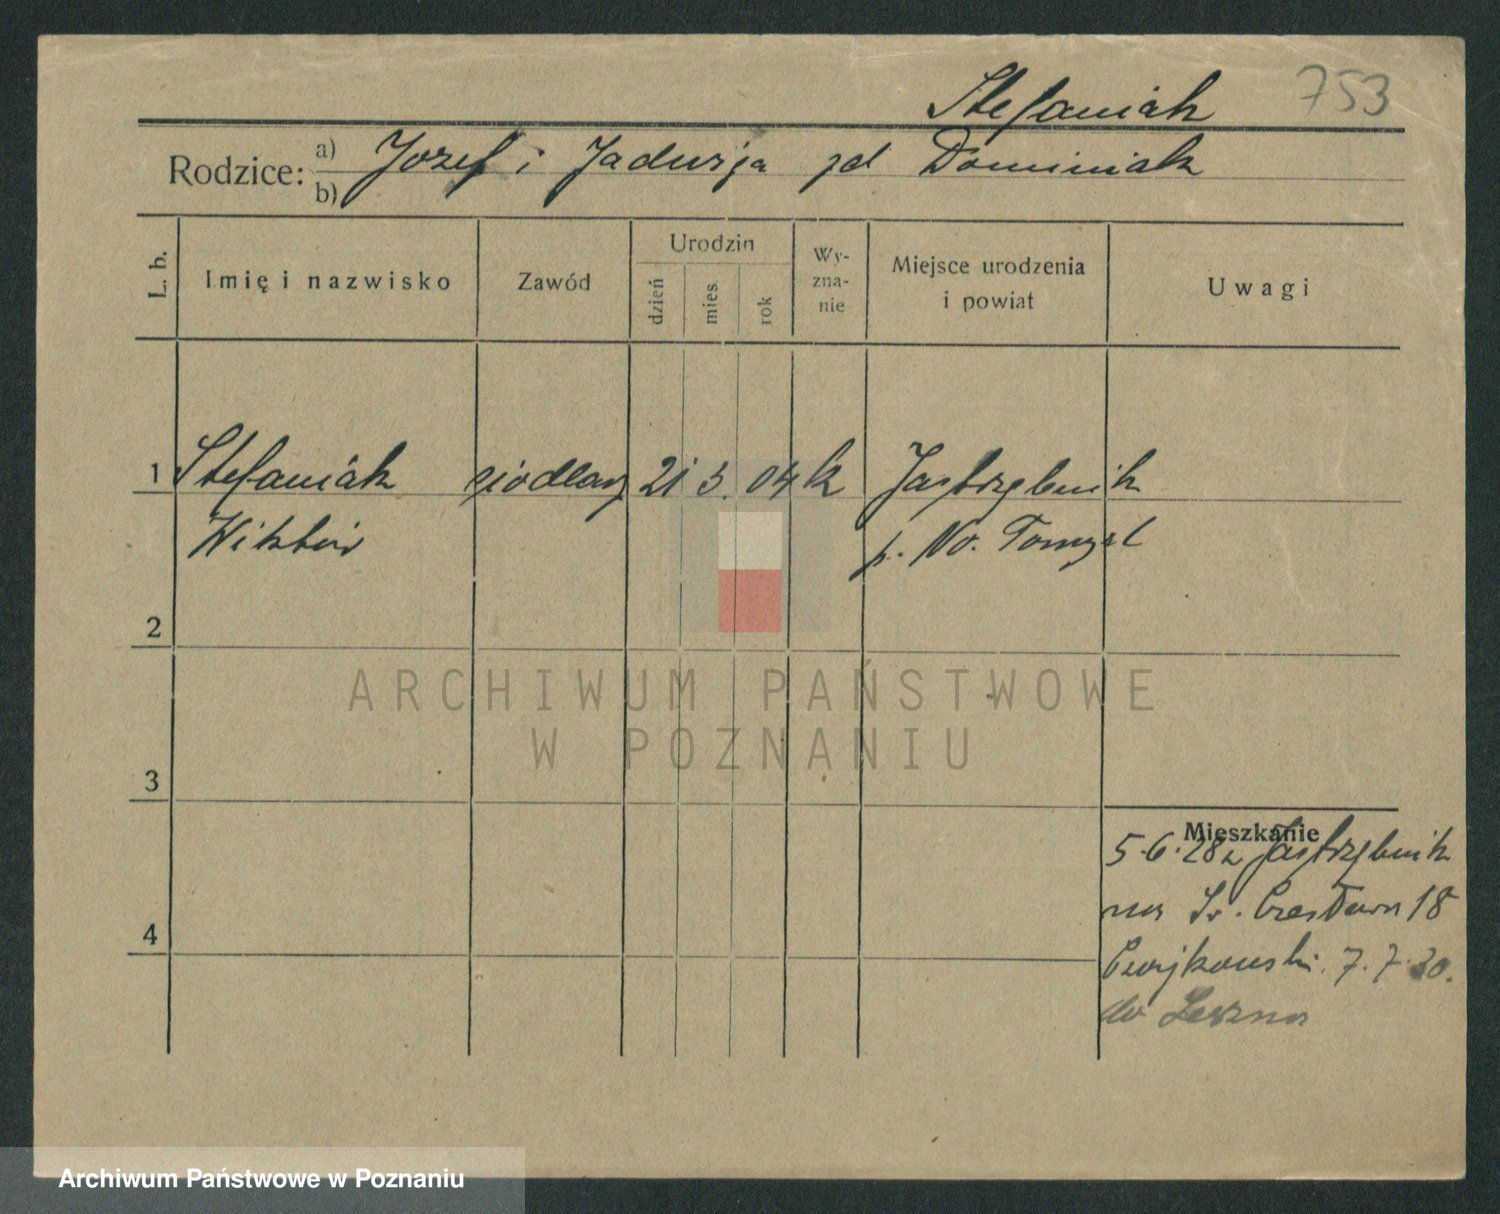 Stefaniak 753
Rodzice: a) Jozef i Jadwiga zd Dominiak
b)
L. b. Imię i nazwisko Zawód Urodzin dzień mies. rok Wy-zna-nie Miejsce urodzenia i powiat Uwagi
1 Stefaniak siodlarz 21 3. 04 k Jastrzębnik
Wiktor p. No. Tomysl
2
ARCHIWUM PAŃSTWOWE
W POZNANIU
3
Mieszkanie
5.6.28 z Jastrzębnik
na Św. Czesława 18
7.7.30.
do Leszna
4
Archiwum Państwowe w Poznaniu